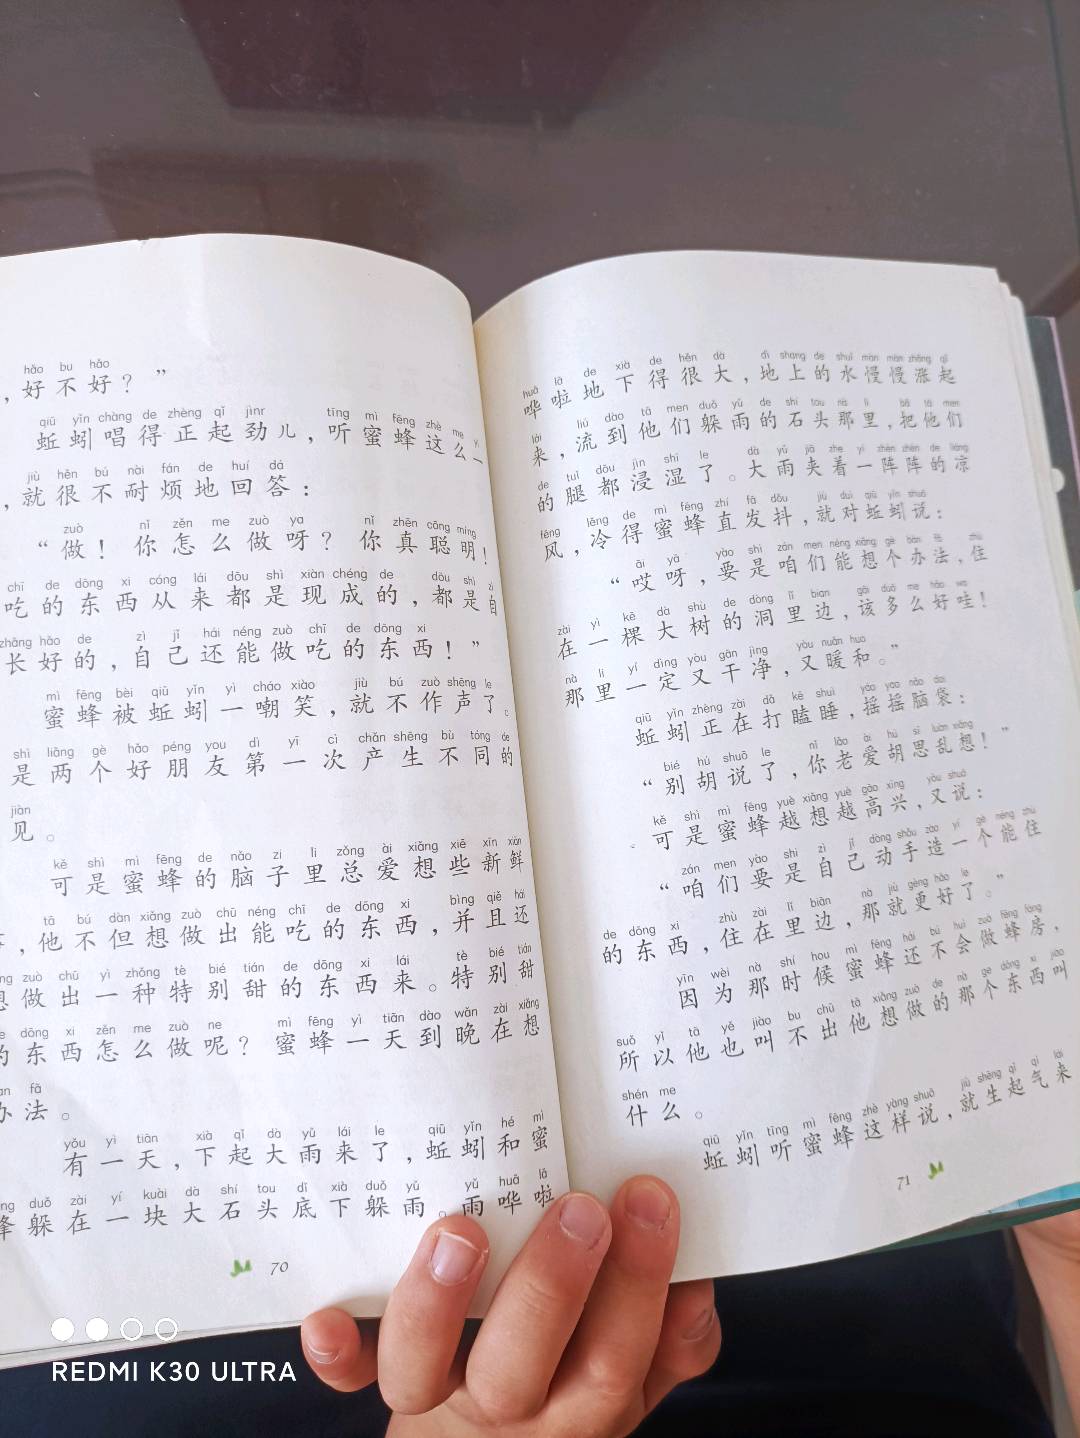 hǎo bu hǎo
，好不好？”
qiū yǐn chàng de zhèng qǐ jìnr tīng mì fēng zhè me yí
蚯蚓唱得正起劲儿，听蜜蜂这么一
jiù hěn bú nài fán de huí dá
，就很不耐烦地回答：
zuò nǐ zěn me zuò ya nǐ zhēn cōng míng
“做！你怎么做呀？你真聪明！
chī de dōng xi cóng lái dōu shì xiàn chéng de dōu shì zì
吃的东西从来都是现成的，都是自
zhǎng hǎo de zì jǐ hái néng zuò chī de dōng xi
长好的，自己还能做吃的东西！”
mì fēng bèi qiū yǐn yì cháo xiào jiù bú zuò shēng le
蜜蜂被蚯蚓一嘲笑，就不作声了。
shì liǎng gè hǎo péng you dì yī cì chǎn shēng bù tóng de
是两个好朋友第一次产生不同的
jiàn
见。
kě shì mì fēng de nǎo zi li zǒng ài xiǎng xiē xīn xiān
可是蜜蜂的脑子里总爱想些新鲜
tā bú dàn xiǎng zuò chū néng chī de dōng xi bìng qiě hái
，他不但想做出能吃的东西，并且还
zuò chū yì zhǒng tè bié tián de dōng xi lái tè bié tián
想做出一种特别甜的东西来。特别甜
dōng xi zěn me zuò ne mì fēng yì tiān dào wǎn zài xiǎng
的东西怎么做呢？蜜蜂一天到晚在想
fǎ
办法。
yǒu yì tiān xià qǐ dà yǔ lái le qiū yǐn hé mì
有一天，下起大雨来了，蚯蚓和蜜
duǒ zài yí kuài dà shí tou dǐ xià duǒ yǔ yǔ huā lā
蜂躲在一块大石头底下躲雨。雨哗啦
70
huā lā de xià de hěn dà dì shang de shuǐ màn màn zhǎng qǐ
哗啦地下得很大，地上的水慢慢涨起
lái liú dào tā men duǒ yǔ de shí tou nà li bǎ tā men
来，流到他们躲雨的石头那里，把他们
de tuǐ dōu jìn shī le dà yǔ jiā zhe yí zhèn zhèn de liáng
的腿都浸湿了。大雨夹着一阵阵的凉
fēng lěng de mì fēng zhí fā dǒu jiù duì qiū yǐn shuō
风，冷得蜜蜂直发抖，就对蚯蚓说：
āi yā yào shi zán men néng xiǎng gè bàn fǎ zhù
“哎呀，要是咱们能想个办法，住
zài yì kē dà shù de dòng li bian gāi duō me hǎo wa
在一棵大树的洞里边，该多么好哇！
nà li yí dìng yòu gān jìng yòu nuǎn huo
那里一定又干净，又暖和。”
qiū yǐn zhèng zài dǎ kē shuì yáo yao nǎo dai
蚯蚓正在打瞌睡，摇摇脑袋：
bié hú shuō le nǐ lǎo ài hú sī luàn xiǎng
“别胡说了，你老爱胡思乱想！”
kě shì mì fēng yuè xiǎng yuè gāo xìng yòu shuō
可是蜜蜂越想越高兴，又说：
zán men yào shi zì jǐ dòng shǒu zào yí gè néng zhù
“咱们要是自己动手造一个能住
de dōng xi zhù zài lǐ biān nà jiù gèng hǎo le
的东西，住在里边，那就更好了。”
yīn wèi nà shí hou mì fēng hái bú huì zuò fēng fáng
因为那时候蜜蜂还不会做蜂房，
suǒ yǐ tā yě jiào bu chū tā xiǎng zuò de nà gè dōng xi jiào
所以他也叫不出他想做的那个东西叫
shén me
什么。
qiū yǐn tīng mì fēng zhè yàng shuō jiù shēng qǐ qì lái
蚯蚓听蜜蜂这样说，就生起气来
71
REDMI K30 ULTRA